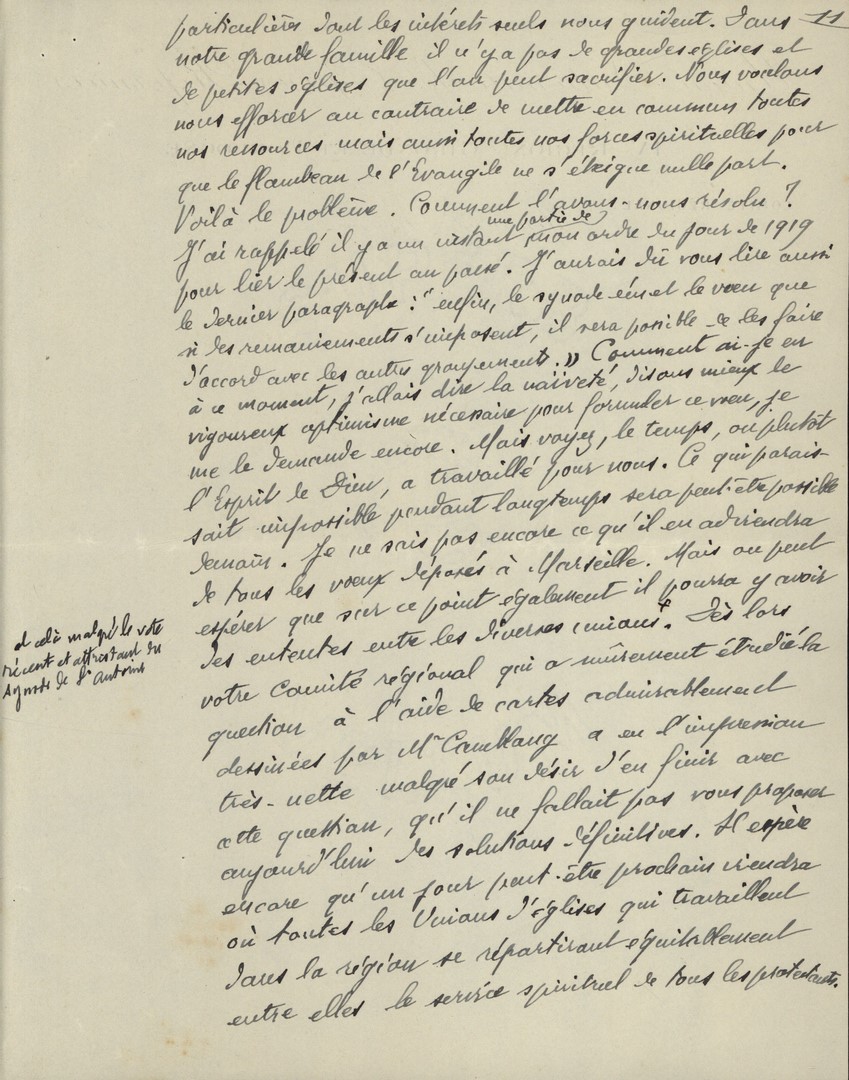 11
particulières dont les intérêts seuls nous guident. Dans
notre grande famille il n'y a pas de grandes églises et
de petites églises que l'on peut sacrifier. Nous voulons
nous efforcer au contraire de mettre en commun toutes
nos ressources mais aussi toutes nos forces spirituelles pour
que le flambeau de l'Evangile ne s'éteigne nulle part.
Voilà le problème. Comment l'avons-nous résolu ?
une partie de
J'ai rappelé il y a un instant mon ordre du jour de 1919
pour lier le présent au passé. J'aurais dû vous lire aussi
le dernier paragraphe : "enfin, le synode émet le vœu que
si des remaniements s'imposent, il sera possible de les faire
d'accord avec les autres groupements. » Comment ai-je eu
à ce moment, j'allais dire la naïveté, disons mieux le
vigoureux optimisme nécessaire pour formuler ce vœu, je
me le demande encore. Mais voyez, le temps, ou plutôt
l'Esprit de Dieu, a travaillé pour nous. Ce qui parais-
sait impossible pendant longtemps sera peut-être possible
demain. Je ne sais pas encore ce qu'il en adviendra
de tous les vœux déposés à Marseille. Mais on peut
espérer que sur ce point également il pourra y avoir
des ententes entre les diverses unions. Dès lors
et celà malgré le vote
récent et attristant du
Synode de St Antoine
votre Comité régional qui a mûrement étudié la
question à l'aide de cartes admirablement
dessinées par Mr a eu l'impression
très-nette malgré son désir d'en finir avec
cette question, qu'il ne fallait pas vous proposer
aujourd'hui des solutions définitives. Il espère
encore qu'un jour peut-être prochain viendra
où toutes les Unions d'églises qui travaillent
dans la région se répartiront équitablement
entre elles le service spirituel de tous les protestants.